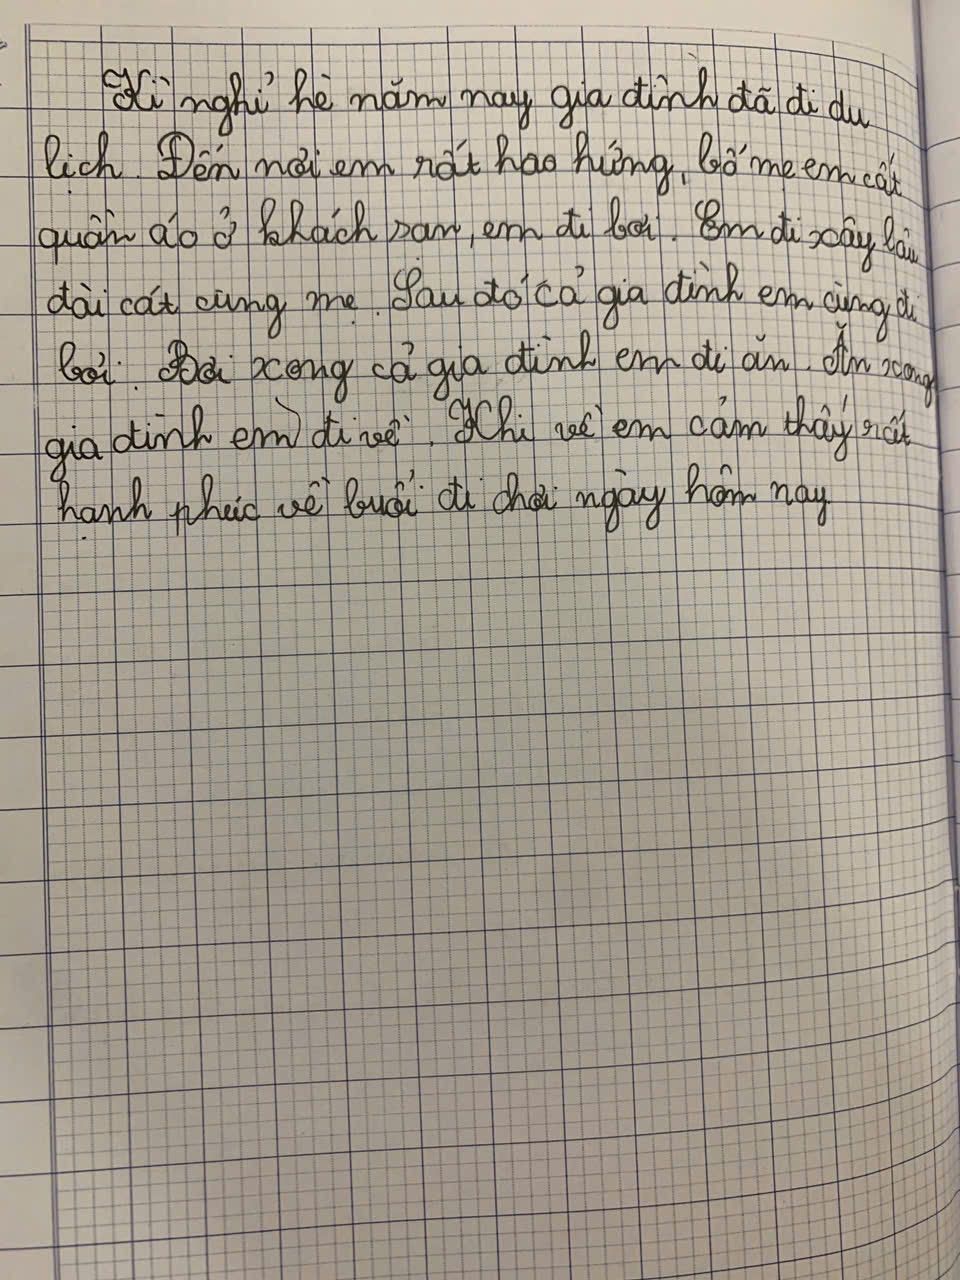 Kì nghỉ hè năm nay gia đình đã đi du
lịch. Đến nơi em rất hao hứng, bố mẹ em cất
quần áo ở khách san, em đi bơi. Em đi xây lâu
đài cát cùng mẹ. Sau đó cả gia đình em cùng đi
bơi. Bơi xong cả gia đình em đi ăn. Ăn xong
gia đình em đi về. Khi về em cảm thấy rất
hạnh phúc về buổi đi chơi ngày hôm nay